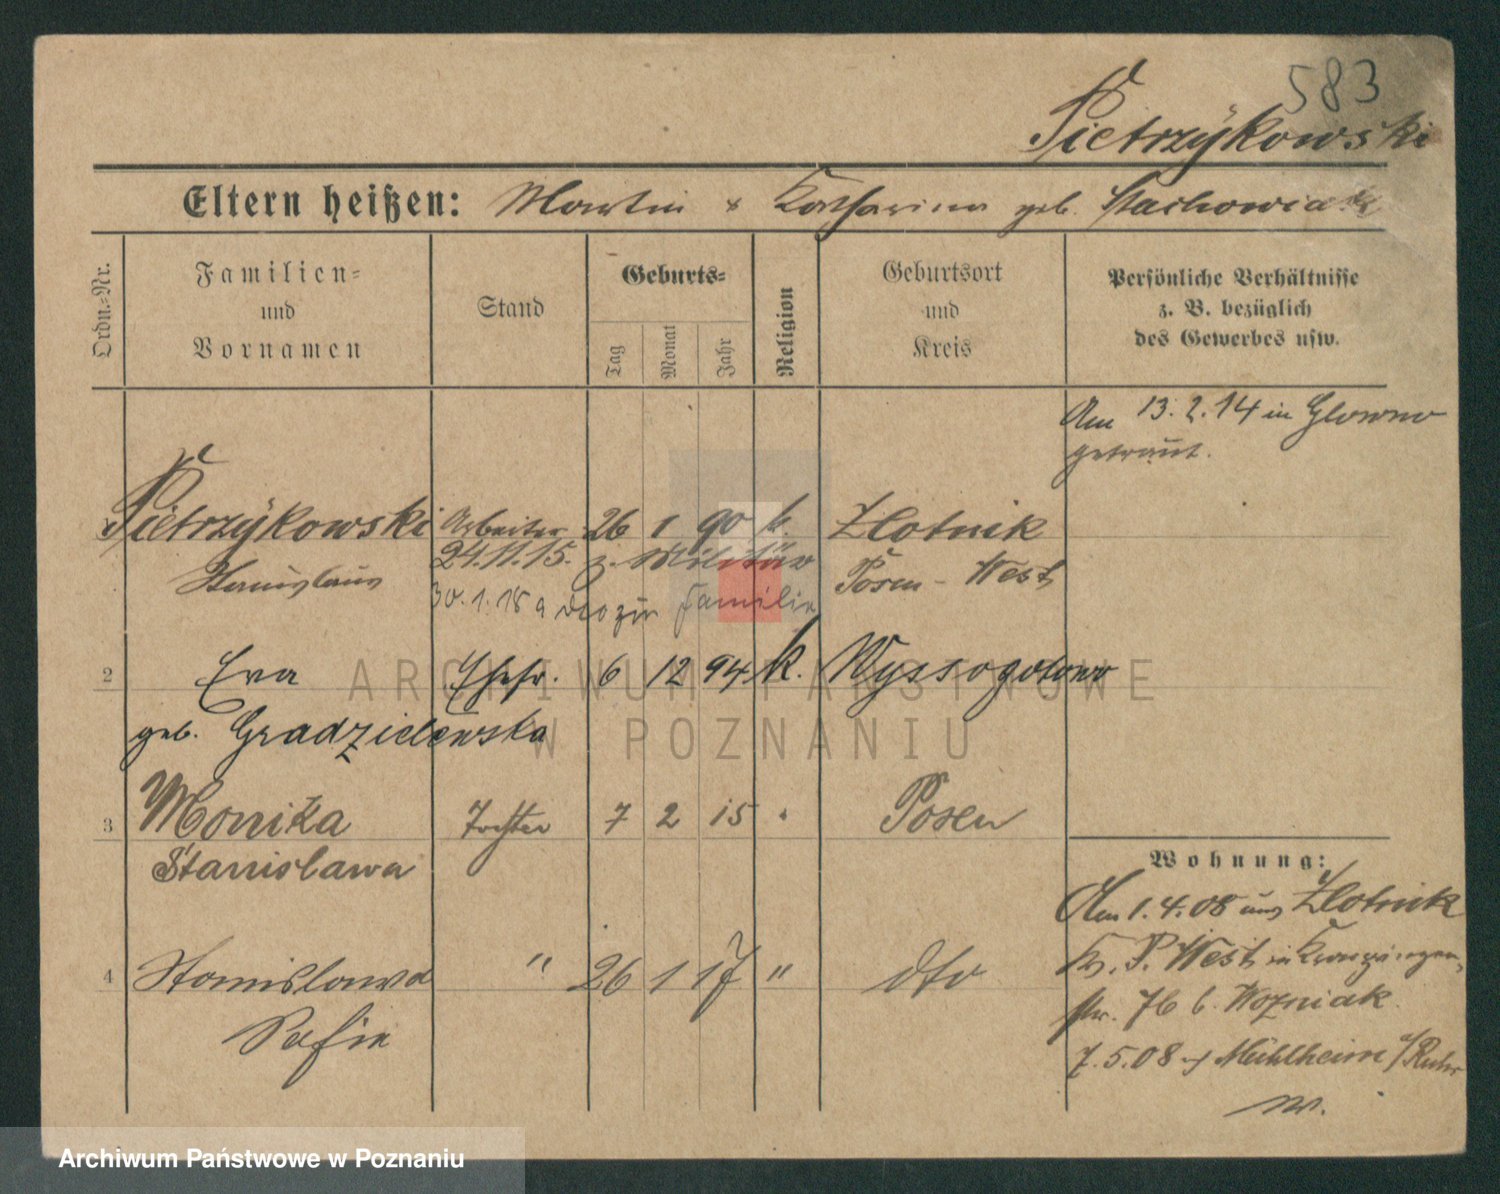 583
Pietrzÿkowski
Eltern heißen: Martin & Katharina geb. Stachowiak
Ordn.-Nr.
Familien-
und
Vornamen
Stand
Geburts-
Tag
Monat
Jahr
Religion
Geburtsort
und
Kreis
Persönliche Verhältnisse
z. B. bezüglich
des Gewerbes usw.
Am 13.2.14 in Glowno
getraut.
Pietrzÿkowski Arbeiter 26 1 90 k. Zlotnik
Stanislaus 24.11.15. z. Militär Posen - West
30.1.18 zur Familie
2 Eva Ehefr. 6 12 94 k. Wyssogotowo
geb. Gradzielewska
3 Monika Tochter 7 2 15 " Posen
Stanislawa
4 Stanislawa " 26 1 17 " dto
Sofie
Wohnung:
Am 1.4.08 aus Zlotnik
Kr. P. West in
str. 7b b. Wozniak.
7.5.08 Mühlheim a/Ruhr
ARCHIWUM PAŃSTWOWE
W POZNANIU
Archiwum Państwowe w Poznaniu